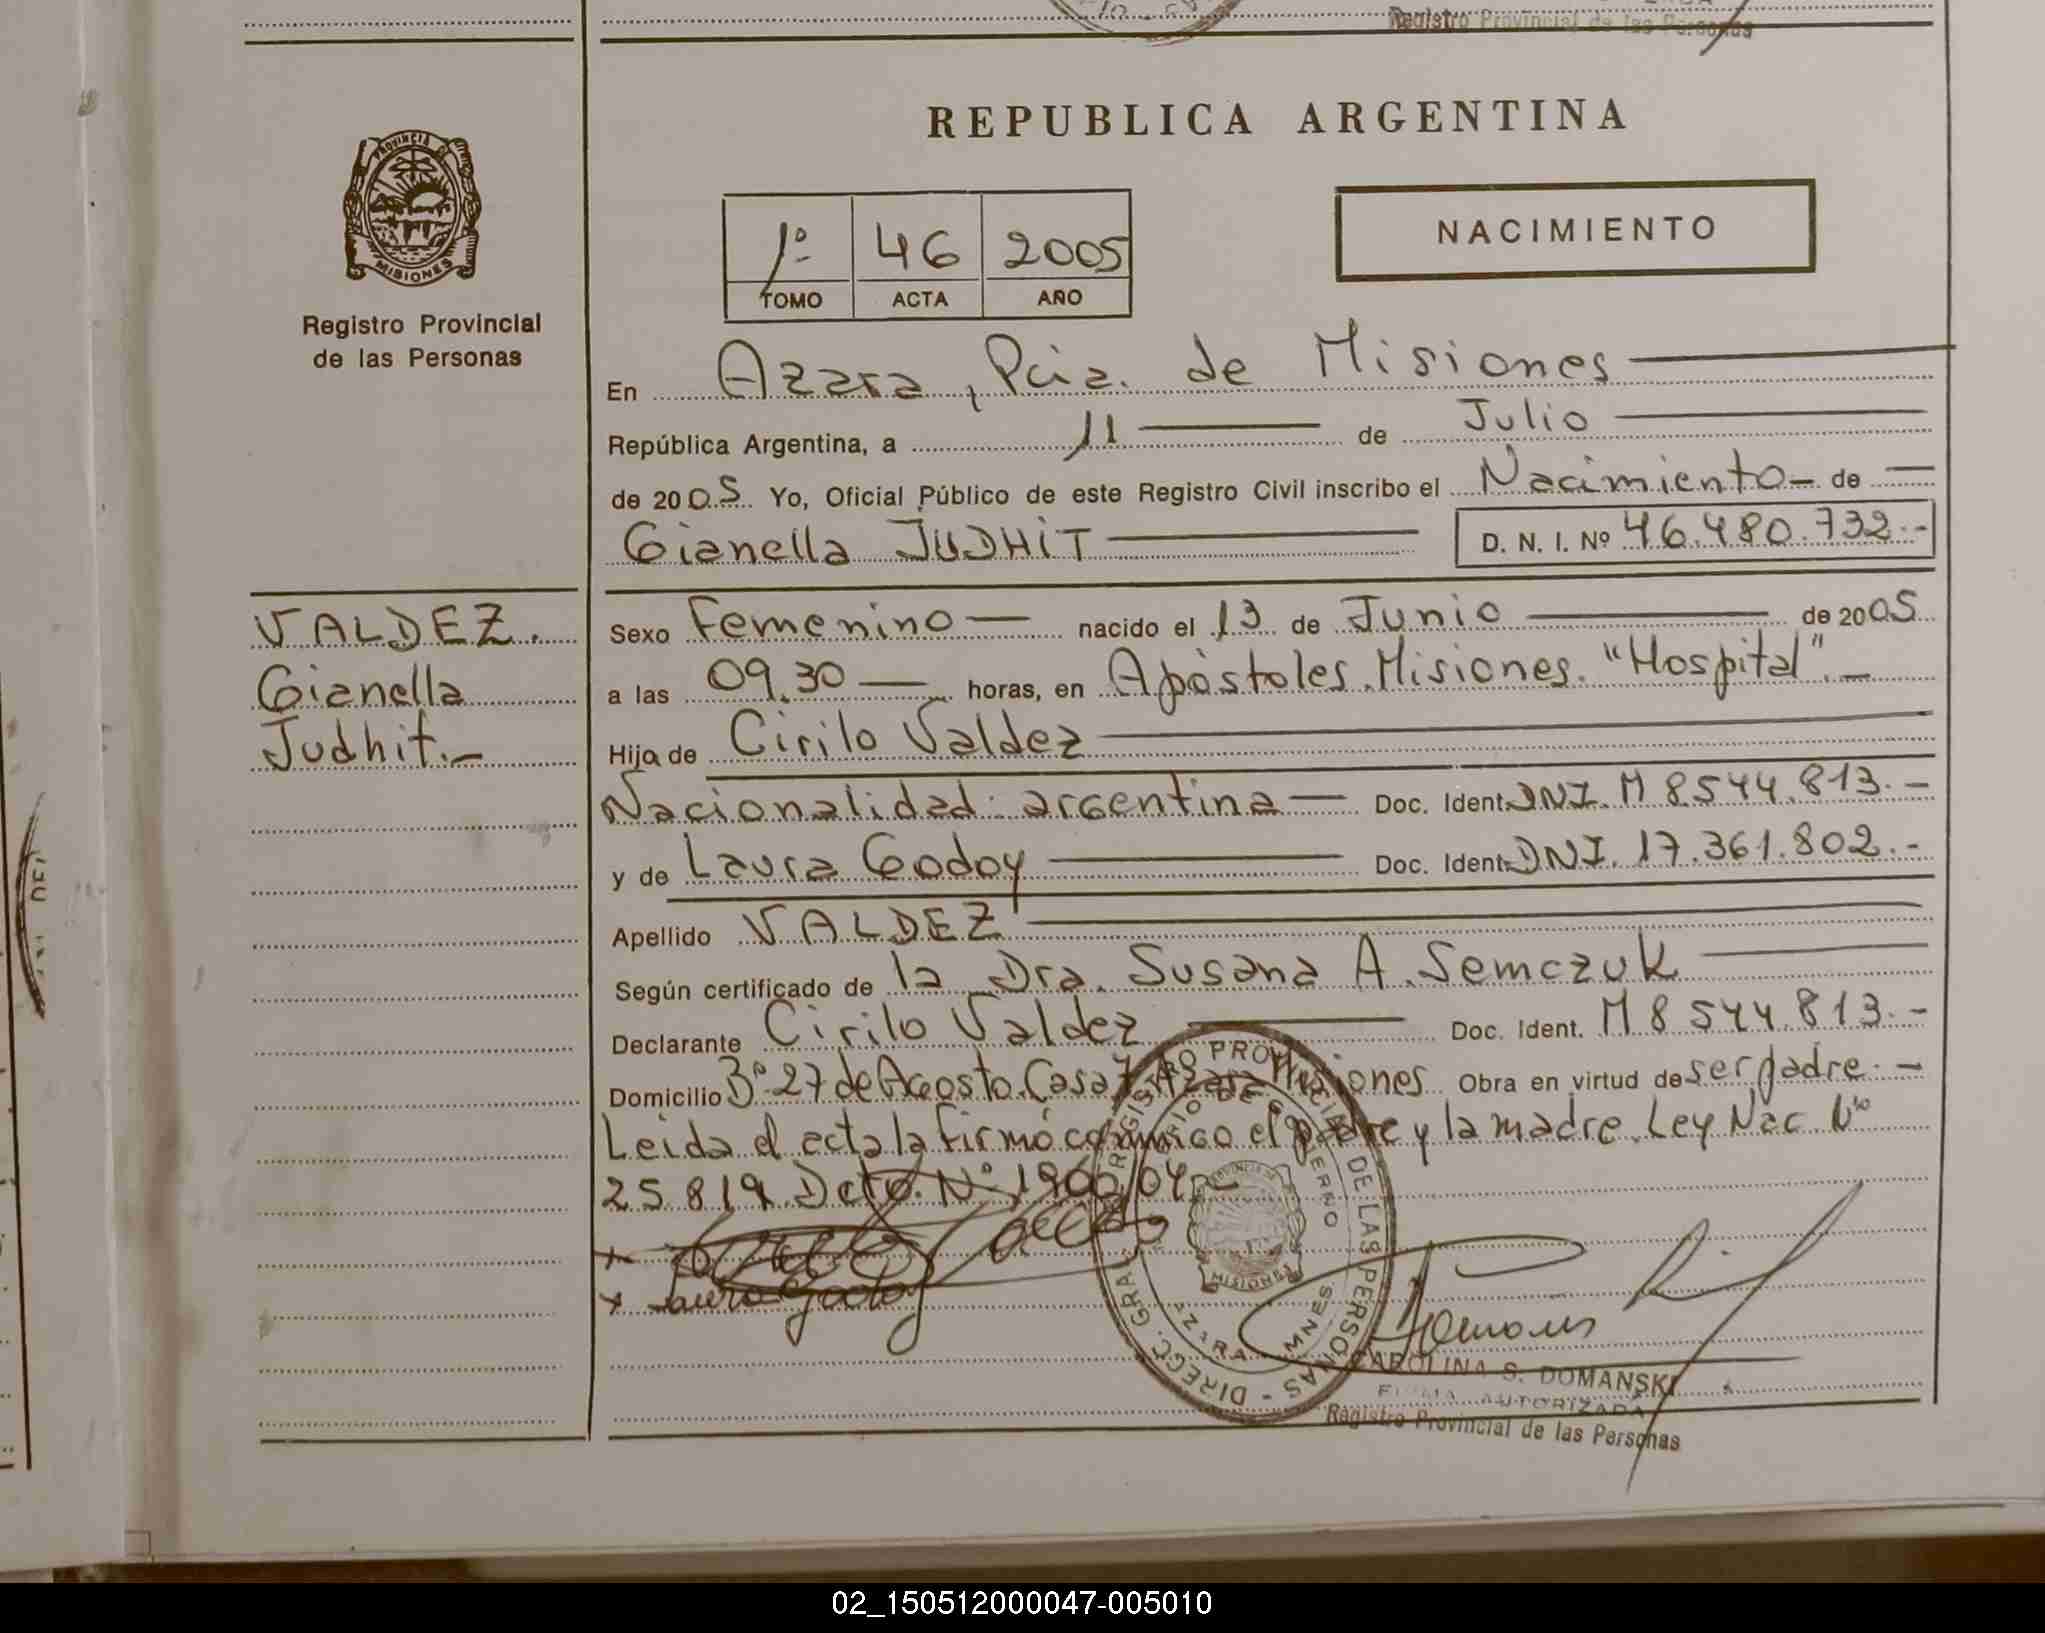 Registro Provincial de las Personas
PROVINCIA DE
MISIONES
Registro Provincial
de las Personas
REPUBLICA ARGENTINA
1º 46 2005
TOMO ACTA AÑO
NACIMIENTO
En Azara, Pcia. de Misiones
República Argentina, a 11 de Julio
de 2005. Yo, Oficial Público de este Registro Civil inscribo el Nacimiento - de
Gianella JUDHIT D. N. I. Nº 46.480.732.-
VALDEZ.
Gianella
Judhit.-
Sexo Femenino nacido el 13 de Junio de 2005
a las 09.30 horas, en Apóstoles. Misiones. "Hospital".-
Hija de Cirilo Valdez
Nacionalidad: argentina Doc. Ident. DNI. M 8544.813.-
y de Laura Godoy Doc. Ident. DNI. 17.361.802.-
Apellido VALDEZ
Según certificado de la Dra. Susana A. Semczuk
Declarante Cirilo Valdez Doc. Ident. M 8544.813.-
Domicilio Bº 27 de Agosto. Casa 7 Azara Misiones Obra en virtud de ser padre.-
Leida el acta la firmó conmigo el padre y la madre. Ley Nac Nº
25.819. Dcto. Nº 1900/04.-
x Laura Godoy
DIRECC. GRAL. REGISTRO PROVINCIAL DE LAS PERSONAS
MINISTERIO DE GOBIERNO
AZARA MNES.
PROVINCIA DE
MISIONES
CAROLINA S. DOMANSKI
FIRMA AUTORIZADA
Registro Provincial de las Personas
02_150512000047-005010